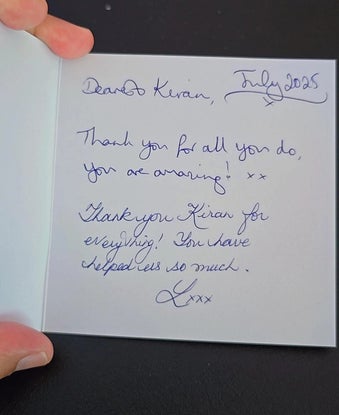 July 2025
x
Dearest Kiran,
Thank you for all you do,
you are amazing! xx
Thank you Kiran for
everything! You have
helped us so much.
L xxx